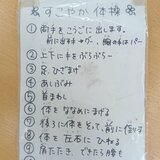 すこやか体操
① 両手をこうごに出します。
前に出す手→グー、胸の手はパー
② 上下に手をぶらぶら〜
③ 足、ひざまげ
④ あしぶみ
⑤ 首まわし
⑥ 体をななめにまげる
⑦
⑧ 体を左右にひねる
⑨ 肩たたき、できたら腰も